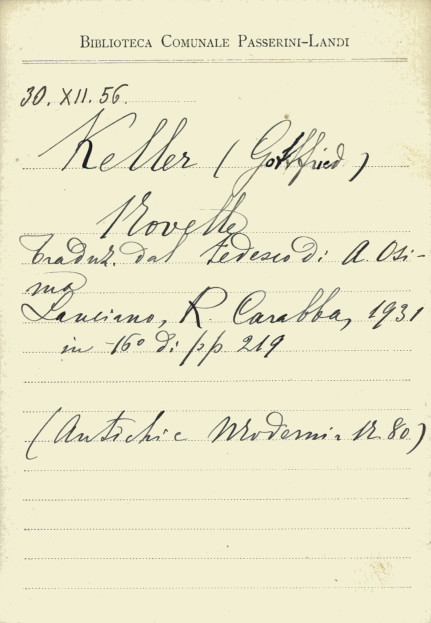 BIBLIOTECA COMUNALE PASSERINI-LANDI
30. XII. 56.
Keller (Gottfried)
Novelle
Traduz. dal tedesco di A. Osi-
mo
Lanciano, R. Carabba, 1931
in 16° di pp. 219
(Antichi e Moderni - N. 80)